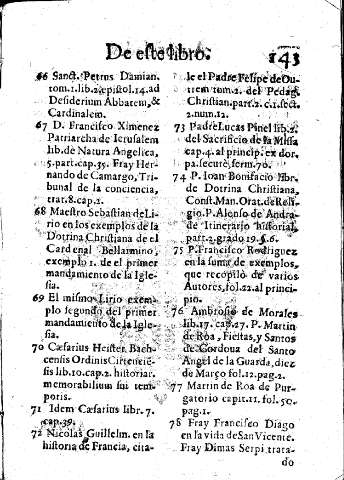 De este libro. 143
66 Sanct. Petrus Damian.
tom. 1. lib. 2. epistol. 14. ad
Desiderium Abbatem, &
Cardinalem.
67 D. Francisco Ximenez
Patriarcha de Ierusalem
lib. de Natura Angelica,
5. part. cap. 35. Fray Her-
nando de Camargo, Tri-
bunal de la conciencia,
trat. 8. cap. 2.
68 Maestro Sebastian de Li-
rio en los exemplos de la
Dotrina Christiana de el
Cardenal Bellarmino,
exemplo 1. de el primer
mandamiento de la Igle-
sia.
69 El mismo Lirio exem-
plo segundo del primer
mandamiento de la Igle-
sia.
70 Cæsarius Heister. Bach-
censis Ordinis Cisterciē-
sis lib. 10. cap. 2. historiar.
memorabilium sui tem-
poris.
71 Idem Cæsarius libr. 7.
cap. 39.
72 Nicolas Guillelm. en la
historia de Francia, cita-
le el Padre Felipe de Ou-
trem tom. 2. del Pedag.
Christian. part. 2. c. 1. sect.
2. num. 12.
73 Padre Lucas Pinel lib. 2.
del Sacrificio de la Missa
cap. 4. al princip. ex dor.
pa. secute, serm. 70.
74 P. Ioan Bonifacio libr.
de Dotrina Christiana,
Const. Man. Orat. de Reli-
gio. P. Alonso de Andra-
de Itinerario historial,
part. 2. grado 19. §. 6.
75 P. Francisco Rodriguez
en la suma de exemplos,
que recopilò de varios
Autores, fol. 22. al princi-
pio.
76 Ambrosio de Morales
lib. 17. cap. 27. P. Martin
de Roa, Fiestas, y Santos
de Cordoua del Santo
Angel de la Guarda, diez
de Março fol. 12. pag. 2.
77 Martin de Roa de Pur-
gatorio capit. 11. fol. 50.
pag. 1.
78 Fray Francisco Diago
en la vida de San Vicente.
Fray Dimas Serpi, trata-
do